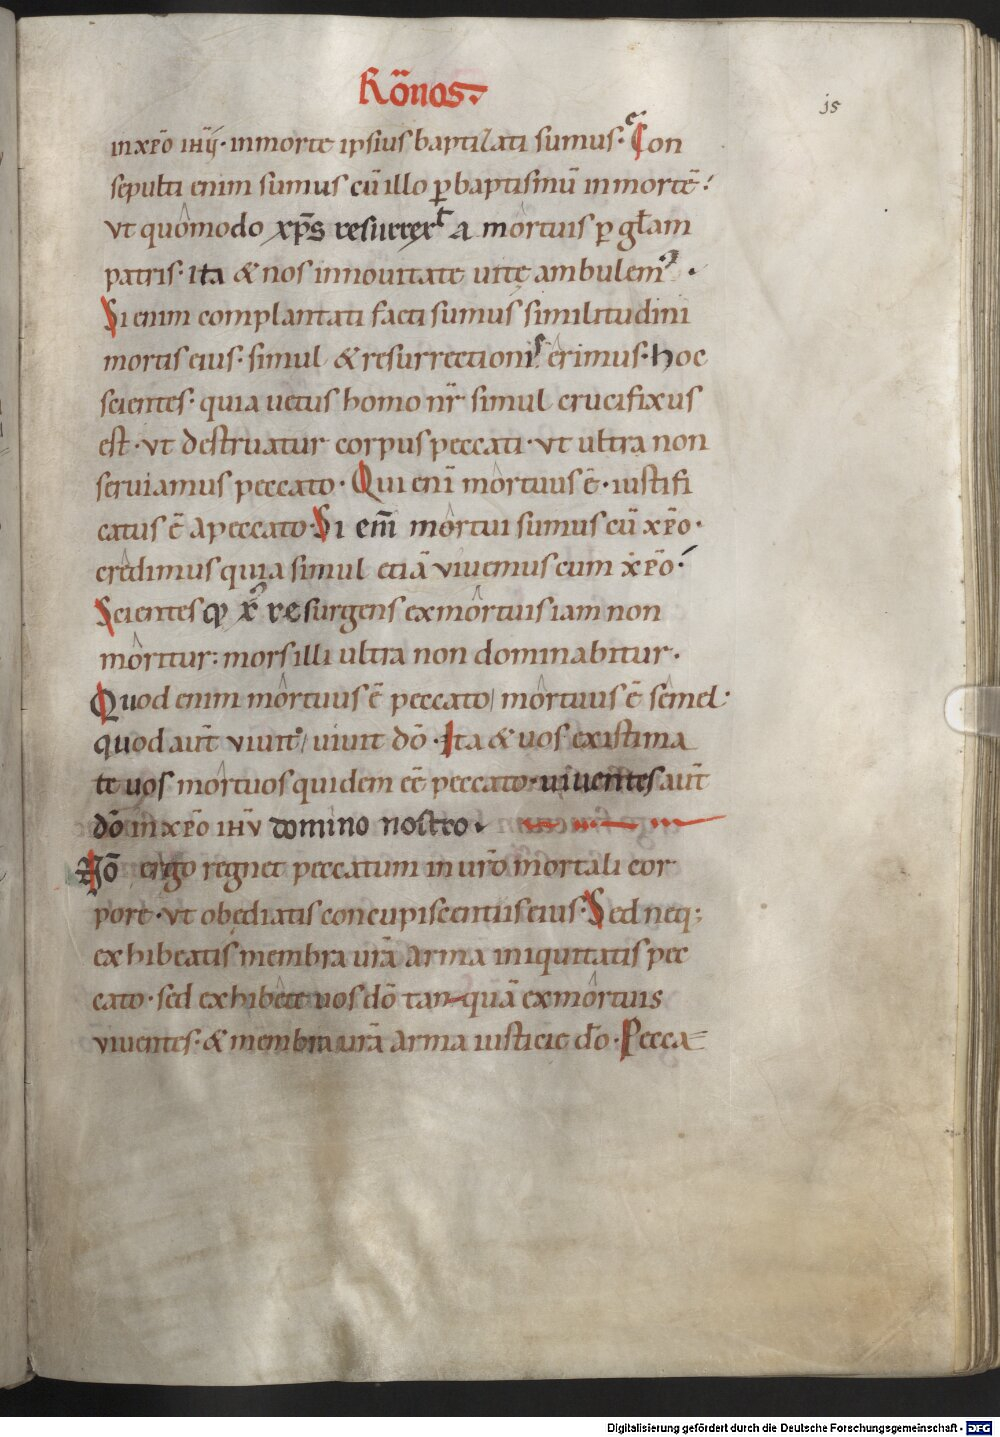 Rōnos.
15
in xp̄o ih̄ū· in morte ipsius baptizati sumus. Con
sepulti enim sumus cū illo p̱ baptismū in mortē:
vt quomodo xp̄s resurrext a mortuis p̱ gl̄am
patris· ita & nos in nouitate uitę ambulemꝰ.
Si enim complantati facti sumus similitudini
mortis eius· simul & resurrectionis erimus· hoc
scientes· quia uetus homo nr̄ simul crucifixus
est· vt destruatur corpus peccati· vt ultra non
seruiamus peccato· Qui eni̅ mortuus ē· iustifi
catus ē a peccato· Si eni̅ mortui sumus cū xp̄o·
credimus quia simul etiā viuemus cum xp̄o·
Scientes qͦ xp̄ꝰ resurgens ex mortuis iam non
moritur: mors illi ultra non dominabitur.
Quod enim mortuus ē peccato/ mortuus ē semel·
quod aut̄ viuit/ uiuit dō· Ita & uos existima
te uos mortuos quidem eē peccato· uiuentes aut̄
dō in xp̄o ihv̄ domino nostro.
Nō ergo regnet peccatum in uro̅ mortali cor
pore· vt obediatis concupiscentiis eius· Sed neq;
exhibeatis membra ura̅ arma iniquitatis pec
cato· sed exhibete uos dō tan-quā ex mortuis
viuentes: & membra ura̅ arma iusticie do̅· Pecca
Digitalisierung gefördert durch die Deutsche Forschungsgemeinschaft - DFG